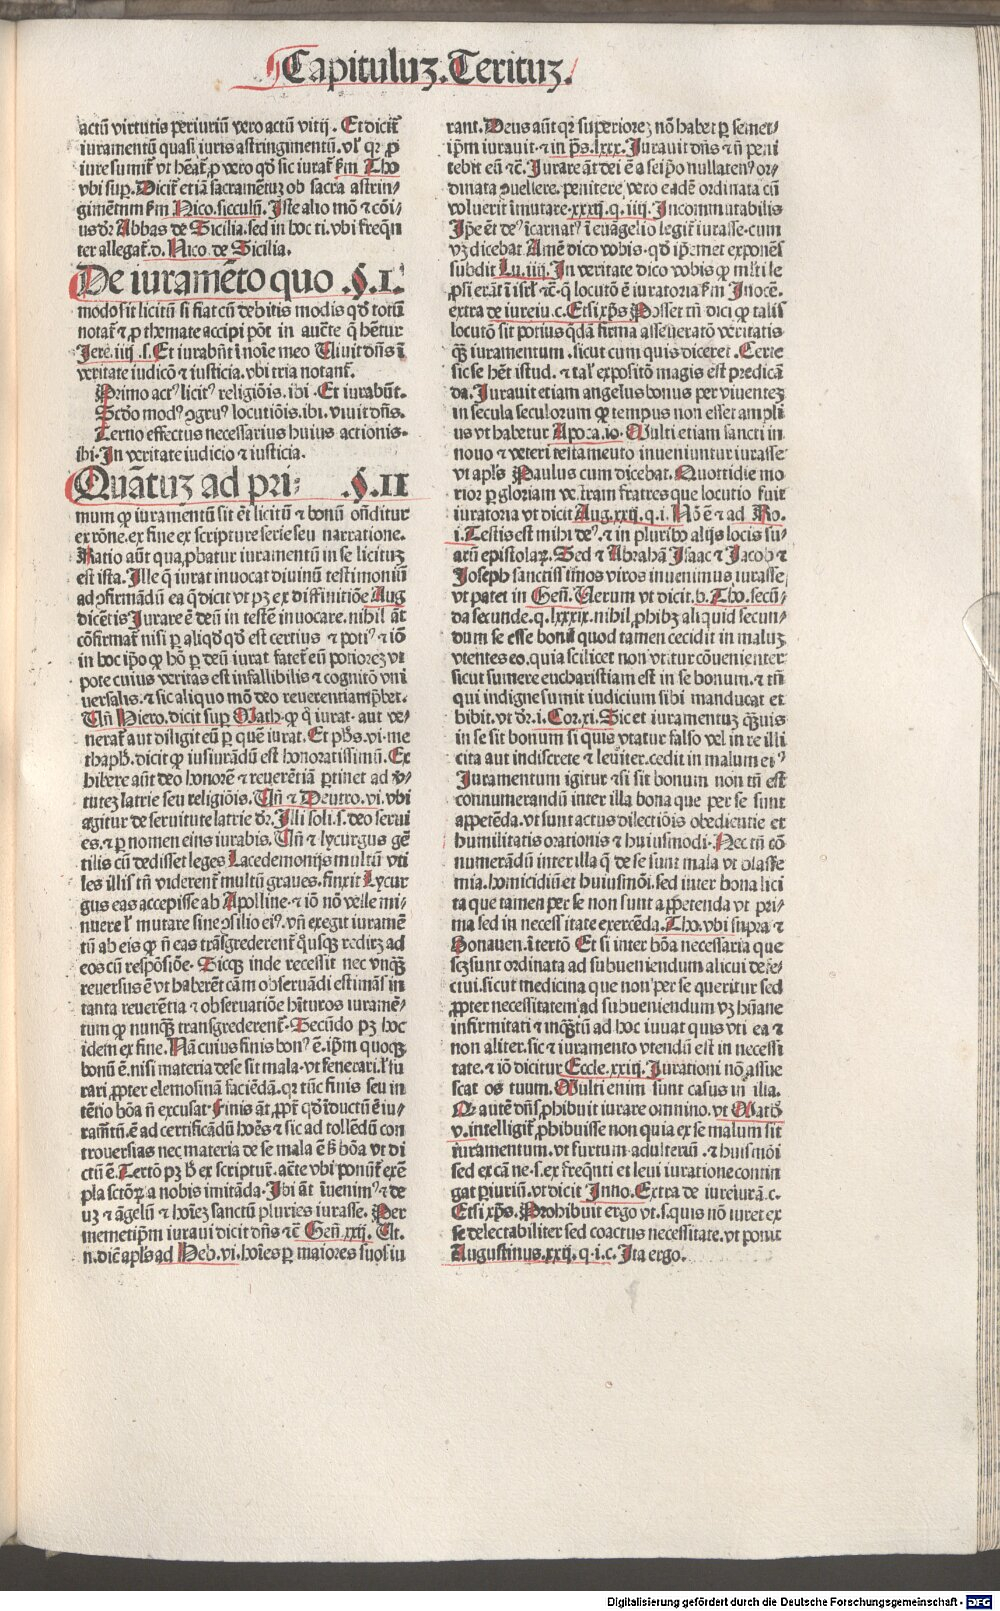 Capituluꝫ. Terituꝫ.
actū virtutis periuriū vero actū vitij. Et dicit̄
iuramentū quasi iuris astringimentū. vl' qꝛ ꝓ
iure sumit̄ vt hēat̄ ꝓ vero qd̄ sic iurat̄ ẜm Tho
vbi sup̄. Dicit̄ etiā sacramētuꝫ ob sacra astrin⸗
gimētum ẜm Nico. siculū. Iste alio mō ⁊ cōi⸗
us dr̄ Abbas de Sicilia. sed in hoc ti. vbi freqn̄
ter allegat̄. d. Nico de Sicilia.
De iuramēto quo .§.I.
modo sit licitū si fiat cū debitis modis qd̄ totū
notat̄ ⁊ ꝓ themate accipi pōt in aucte q̄ hētur
Iere. iiij. s. Et iurabūt ī noīe meo Viuit dn̄s ī
veritate iudicō ⁊ iusticia. vbi tria notant̄.
Primo act⁹ licit⁹ religiōis. ibi. Et iurabūt.
Scdō mod⁹ ꝯgru⁹ locutiōis. ibi. viuit dn̄s.
Tertio effectus necessarius huius actionis.
ibi. In veritate iudicio ⁊ iusticia.
Quātuꝫ ad pri⸗ .§.II
mum ꝙ iuramentū sit ēt licitū ⁊ bonū on̄ditur
ex rōne. ex fine ex scripture serie seu narratione.
Ratio aūt qua ꝓbatur iuramentū in se licituꝫ
est ista. Ille q̄ iurat inuocat diuinū testimoniū
ad ꝯfirmādū ea q̄ dicit vt pꝫ ex diffinitiōe Aug
dicētis Iurare ē deū in testē inuocare. nihil āt
cōfirmat̄ nisi ꝑ aliqd̄ qd̄ est certius ⁊ poti⁹ ⁊ iō
in hoc ip̄o ꝙ hō ꝑ deū iurat fatet̄ eū potioreꝫ vt
pote cuius veritas est infallibilis ⁊ cognitō vni
uersalis. ⁊ sic aliquo mō deo reuerentiam p̄bet.
Vn̄ Hiero. dicit sup̄ Math. ꝙ q̄ iurat. aut ve⸗
nerat̄ aut diligit eū ꝑ quē iurat. Et ph̄s. vi. me
thaph̄. dicit ꝙ iusiurādū est honoratissimū. Ex
hibere aūt deo honorē ⁊ reuerētiā ꝑtinet ad v̄⸗
tuteꝫ latrie seu religiōis. Vn̄ ⁊ Deutro. vi. vbi
agitur de seruitute latrie dr̄. Illi soli. s. deo serui
es. ⁊ ꝑ nomen eius iurabis. Vn̄ ⁊ lycurgus gē
tilis cū dedisset leges Lacedemonijs multū vti
les illis tn̄ viderent̄ multū graues. finxit Lycur
gus eas accepisse ab Apolline. ⁊ iō nō velle mi⸗
nuere l' mutare sine ꝯsilio ei⁹. vn̄ exegit iuramē
tū ab eis ꝙ n̄ eas trāsgrederent̄ qusqꝫ rediret ad
eos cū respōsiōe. Sicqꝫ inde recessit nec vnqꝫ̄
reuersus ē vt haberēt cām obseruādi estimās in
tanta reuerētia ⁊ obseruatiōe hīturos iuramē⸗
tum ꝙ nunqꝫ̄ transgrederent̄. Secūdo pꝫ hoc
idem ex fine. Nā cuius finis bon⁹ ē. ip̄m quoqꝫ
bonū ē. nisi materia de se sit mala. vt fenerari. l' fu
rari ꝓpter elemosinā faciēdā. qꝛ tūc finis seu in
tētio bōa n̄ excusat. Finis āt ꝓpt̄ qd̄ īductū ē iu⸗
ram̄tū. ē ad certificādū hoēs ⁊ sic ad tollēdū con
trouersias nec materia de se mala ē ẜ bōa vt di
ctū ē. Tertō pꝫ h̄ ex scriptur̄. acte vbi ponūt̄ exē
pla sctōꝝ a nobis imitāda. Ibi āt īuenim⁹ ⁊ de
uꝫ ⁊ āgelū ⁊ hoīeꝫ sanctū pluries iurasse. Per
memetip̄m iuraui dicit dn̄s ⁊c̄ Gen̄. xxij. Vt.
n. dic̄ apl̄s ad Heb. vi. hoīes ꝑ maiores suos iu
rant. Deus aūt qꝛ superioreꝫ nō habet ꝑ semet⸗
ip̄m iurauit. ⁊ in p̄s. lxxx. Iurauit dn̄s ⁊ n̄ peni
tebit eū ⁊c̄. Iurare āt dei ē a seip̄o nullaten⁹ or⸗
dinata ꝯuellere. penitere vero eadē ordinata cū
voluerit īmutare. xxxij. q. iiij. Incommutabilis
Ip̄e ēt de⁹ īcarnat⁹ ī euāgelio legit̄ iurasse. cum
vꝫ dicebat Amē dico vobis. qd̄ ip̄emet exponēs
subdit Lu. iiij. In veritate dico vobis ꝙ mlti le
ꝓsi erāt ī isrl̄ ⁊c̄. q̄ locutō ē iuratoria ẜm Inocē.
extra de iureiu. c. Etsi xp̄s Posset tn̄ dici ꝙ talis
locutō sit potius qdā firma asseueratō veritatis
qꝫ̄ iuramentum. sicut cum quis diceret. Certe
sic se hēt istud. ⁊ tal' expositō magis est predicā
da. Iurauit etiam angelus bonus per viuenteꝫ
in secula seculorum ꝙ tempus non esset ampli
us vt habetur Apoca. 10. Multi etiam sancti in
nouo ⁊ veteri testamento inueniuntur iurasse
vt apl̄s Paulus cum dicebat. Quottidie mo
rior ꝑ gloriam vestram fratres que locutio fuit
iuratoria vt dicit Aug. xxij. q. i. Nō ē ⁊ ad Ro.
i. Testis est mihi de⁹. ⁊ in pluribꝰ alijs locis su⸗
arū epistolaꝝ. Sed ⁊ Abrahā Isaac ⁊ Iacob ⁊
Ioseph sanctissimos viros inuenimus iurasse
vt patet in Gen̄. Verum vt dicit. b. Tho. secū⸗
da secunde. q. lxxxix. nihil ꝓhibꝫ aliquid secun⸗
dum se esse bonū quod tamen cecidit in maluꝫ
vtentes eo. quia scilicet non vtitur cōuenienter
sicut sumere eucharistiam est in se bonum. ⁊ tn̄
qui indigne sumit iudicium sibi manducat et
bibit. vt dr̄. i. Cor. xi. Sic et iuramentuꝫ qꝫ̄uis
in se sit bonum si quis vtatur falso vel in re illi
cita aut indiscrete ⁊ leuiter. cedit in malum ei⁹
Iuramentum igitur ⁊ si sit bonum non tn̄ est
connumerandū inter illa bona que per se sunt
appetēda. vt sunt actus dilectiōis obedientie et
humilitatis orationis ⁊ huiusmodi. Nec tn̄ cō
numerādū inter illa q̄ de se sunt mala vt blasfe
mia. homicidiū et huiusmōi. sed inter bona lici
ta que tamen per se non sunt appetenda vt pri⸗
ma sed in necessitate exercēda. Tho. vbi supra ⁊
Bonauen. ī tertō Et si inter bōa necessaria que
scꝫ sunt ordinata ad subueniendum alicui defe⸗
ctui. sicut medicina que non per se queritur sed
ꝓpter necessitatem ad subueniendum vꝫ hūane
infirmitati ⁊ inqꝫ̄tū ad hoc iuuat quis vti ea ⁊
non aliter. sic ⁊ iuramento vtendū est in necessi
tate. ⁊ iō dicitur Eccle. xxiij. Iurationi nō assue
scat os tuum. Multi enim sunt casus in illa.
Qꝛ autē dn̄s ꝓhibuit iurare omnino. vt Math̄
v. intelligit̄ ꝓhibuisse non quia ex se malum sit
iuramentum. vt furtum adulteriū. ⁊ huiusmōi
sed ex cā ne. s. ex freqn̄ti et leui iuratione contin
gat ꝑiuriū. vt dicit Inno. Extra de iureiurā. c.
Etsi xp̄s. Prohibuit ergo vt. s. quis nō iuret ex
se delectabiliter sed coactus necessitate. vt ponit
Augustinus. xxij. q. i. c. Ita ergo.
Digitalisierung gefördert durch die Deutsche Forschungsgemeinschaft - DFG